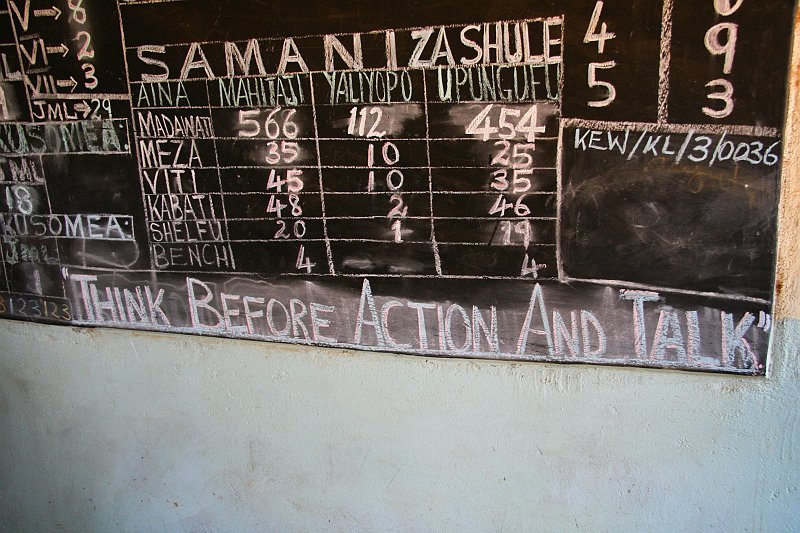 V→ 8
VI→ 2
VII→ 3
JML→29
KUSOMEA:
JML
18
KUSOMEA:
JML
1
123123
SAMANI ZA SHULE
AINA MAHITAJI YALIYOPO UPUNGUFU
MADAWATI 566 112 454
MEZA 35 10 25
VITI 45 10 35
KABATI 48 2 46
SHELFU 20 1 19
BENCHI 4 4
4
5
9
3
KEW/KL/3/0036
"THINK BEFORE ACTION AND TALK".